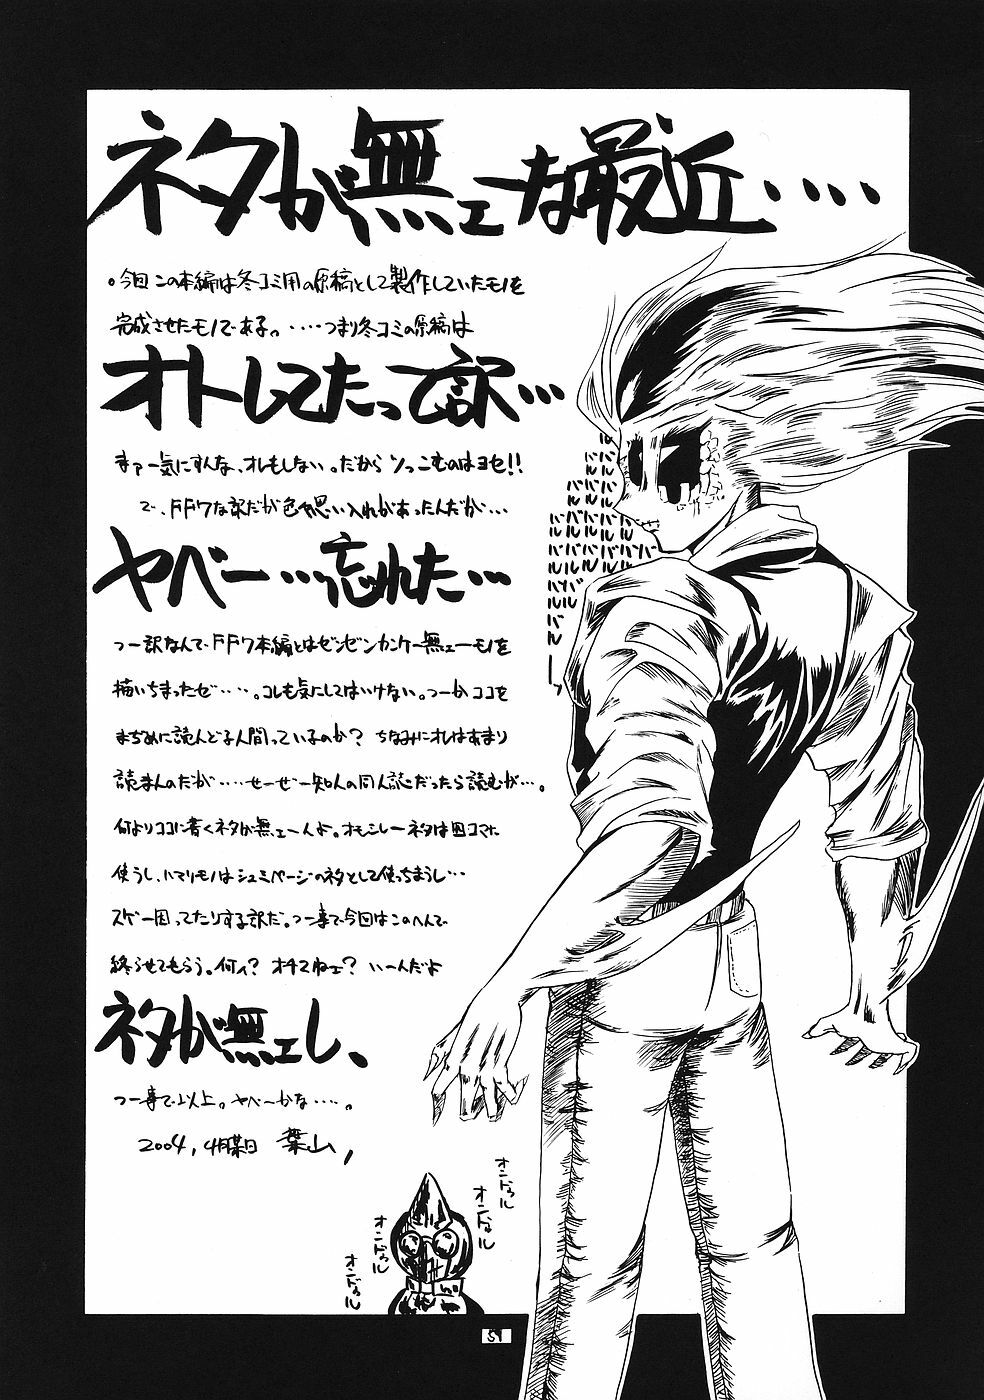 ネタが無ェーな最近・・・・
。今回この本編は冬コミ用の原稿として製作していたモノを
完成させたモノである。・・・・つまり冬コミの原稿は
オトしてたって訳…
まァ一気にすんな、オレもしない。だからツっこむのはヨセ!!
で、FF7な訳だが色々思い入れがあったんだが…
ヤベー…忘れた…
つー訳なんで、FF7本編とはゼンゼンカンケー無ェーモノを
描いちまったゼ・・・・。コレも気にしてはいけない。つーかココを
まぢめに読んどる人間っているのか? ちなみにオレはあまり
読まんのだが・・・・・せーぜー知人の同人誌だったら読むが…。
何よりココに書くネタが無ェーんよ。オモシレーネタは四コマに
使うし、ハマリモノはシュミページのネタとして使っちまうし…
スゲー困ってたりする訳だ。つー事で今回はこのへんで
終らせてもらう。何ィ? オチてねェ? いーんだよ
ネタが無ェし、
つー事で以上。ヤベーかな・・・・。
2004, 4月某日 葉山,
バルバルバルバルバルバルバルバル
オンドゥル
オンドゥル
オンドゥル
オンドゥル
51